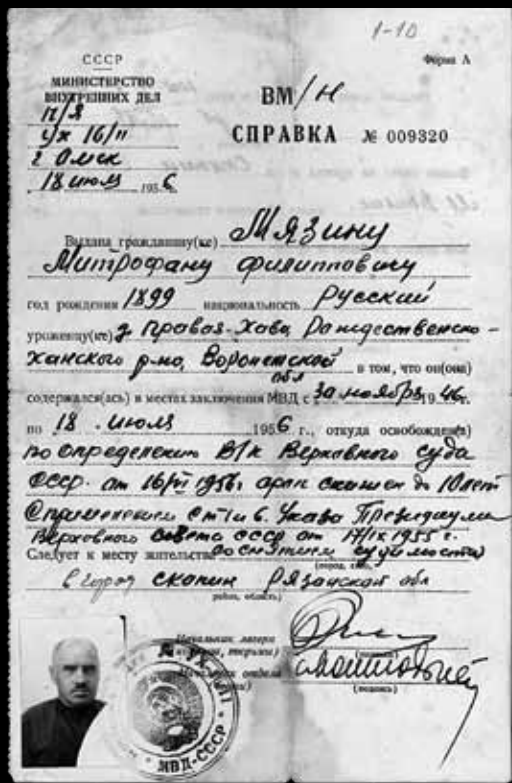 1-10
СССР
Форма А
МИНИСТЕРСТВО
ВНУТРЕННИХ ДЕЛ
п/я
ух 16/11
г Омск
18 июля 1956
ВМ/Н
СПРАВКА № 009320
Выдана гражданину(ке) Мязину
Митрофану Филипповичу
год рождения 1899 национальность Русский
уроженцу(ке) д Правая-Хава, Рождественско-
ханского р-на, Воронежской
обл
в том, что он(она)
содержался(ась) в местах заключения МВД с 30 ноября 1946г.
по 18 июля 1956 г., откуда освобожден(а)
по определению В/к Верховного суда
СССР. от 16/VI 1956г срок снижен до 10 лет
С применением ст 1 и 6. Указа Президиума
Верховного совета СССР от 17/IX 1955 г.
Следует к месту жительства со снятием судимости
в город Скопин Рязанской обл
район, область)
Начальник лагеря
тюрьмы)
(подпись)
Начальник отдела
(подпись)
МВД-СССР